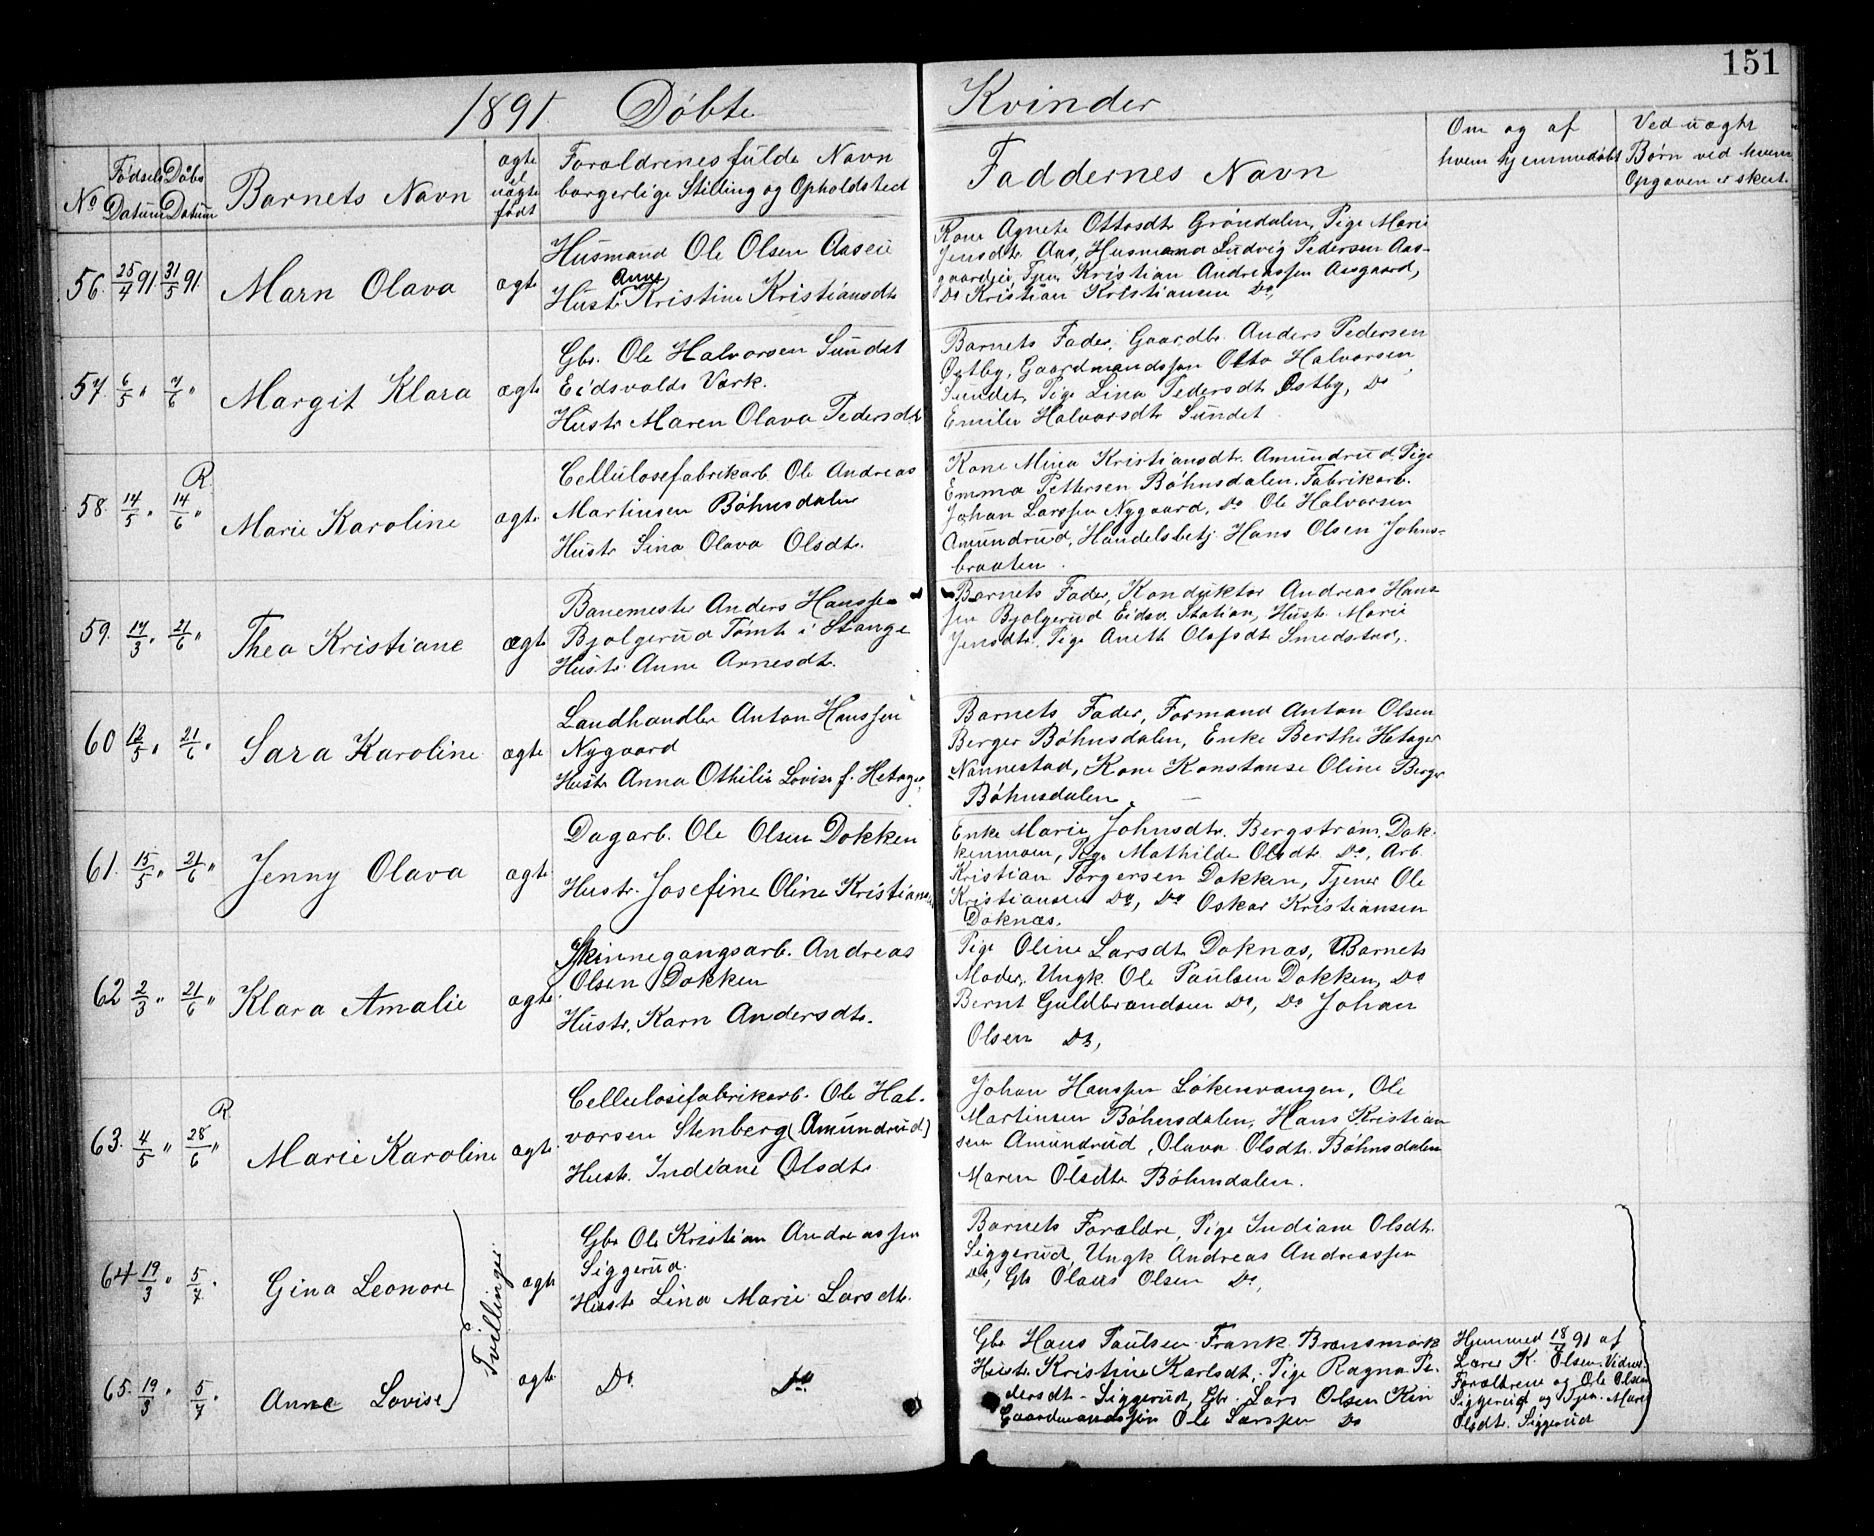 151
1891. Döbte Kvinder
No
Födsels Datum
Döbs Datum
Barnets Navn
ægte el uægte født
Forældrenes fulde Navn
borgerlige Stilling og Opholdsted
Faddernes Navn
Om og af
hvem hjemmedøbt
Ved uægte
Børn ved hvem
Opgaven er skeet.
56. 25/4 91 31/5 91. Marn Olava ægte
Husmand Ole Olsen Aaseie
Anne
Hustr. Kristine Kristiansdt.
Kone Agnete Ottosdt. Gröndalen, Pige Marie
Jensdt. Aas, Husmand Ludvig Pedersen Aas-
gaardeie, Tjen. Kristian Andreassen Aasgaard,
Do Kristian Kristiansen Do,
57. 6/5 " 7/6 " Margit Klara ægte
Gbr. Ole Halvorsen Sundet
Eidsvolds Værk.
Hustr. Maren Olava Pedersdt.
Barnets Fader, Gaardbr. Anders Pedersen
Østby, Gaardmandssøn Otto Halvorsen
Sundet, Pige Lina Pedersdt. Østby, Do
Emilie Halvorsdt. Sundet.
58. 14/5 " R. 14/6 " Marie Karoline ægte
Cellulosefabrikarb. Ole Andreas
Martinsen Böhnsdalen
Hustr. Lina Olava Olsdt.
Kone Mina Kristiansdt. Amundrud, Pige
Emma Pettersen Böhnsdalen, Fabrikarb.
Johan Larssen Nygaard, Do Ole Halvorsen
Amundrud, Handelsbetj. Hans Olsen Johns-
braaten.
59. 17/3 " 21/6 " Thea Kristiane ægte
Banemester Anders Hanssen
Bjølgerud Tomt i Stange
Hustr. Anne Arnesdt.
Barnets Fader, Konduktør Andreas Hans-
sen Bjølgerud Eidsv. Station, Hustr. Marie
Jensdt. Pige Anett Olafsdt. Smedstad,
60 12/5 " 21/6 " Sara Karoline ægte
Landhandler Anton Hanssen
Nygaard
Hustr. Anna Othilie Lovise f. Hetager
Barnets Fader, Formand Anton Olsen
Berger Böhnsdalen, Enke Berthe Hetager
Nannestad, Kone Konstanse Oline Berger
Böhnsdalen.
61. 15/5 " 21/6 " Jenny Olava ægte
Dagarb. Ole Olsen Dokken
Hustr. Josefine Oline Kristians
Enke Marie Johnsdt. Bergström, Dok-
kenmoen, Pige Mathilde Olsdt. Do, Arb.
Kristian Torgersen Dokken, Tjener Ole
Kristiansen Do, Do Oskar Kristiansen
Doknæs.
62 2/3 " 21/6 " Klara Amalie ægte
Skinnegangsarb. Andreas
Olsen Dokken
Hustr. Karn Andersdt.
Pige Oline Larsdt. Doknæs, Barnets
Moder, Ungk. Ole Paulsen Dokken, Do
Bernt Guldbrandsen Do, Do Johan
Olsen Do,
63. 4/5 " R 28/6 " Marie Karoline ægte
Cellulosefabrikarb. Ole Hal-
vorsen Stenberg (Amundrud)
Hustr. Indiane Olsdt.
Johan Hanssen Lökenvangen, Ole
Martinsen Böhnsdalen, Hans Kristian
sen Amundrud, Olava Olsdt. Böhnsdalen
Maren Olsdt. Böhnsdalen.
64 19/3 " 5/7 " Gina Leonore ægte
Tvillinger
Gbr. Ole Kristian Andreassen
Siggerud.
Hustr. Lina Marie Larsdt.
Barnets Forældre, Pige Indiane Olsdt.
Siggerud, Ungk Andreas Andreassen
Do, Gbr Olaus Olsen Do,
65. 19/3 " 5/7 " Anne Lovise ægte
Do Do
Gbr. Hans Paulsen Frank Brænsmork
Hustr. Kristine Karlsdt., Pige Ragna Pe-
dersdt. Siggerud, Gbr. Lars Olsen Kin
Gaardmandssøn Ole Larssen Do
Hjemmed 18/4 91 af
Lærer K. Olsen. Vidner
Forældrene og Ole Olsen
Siggerud og Tjen. Mari
Olsdt. Siggerud